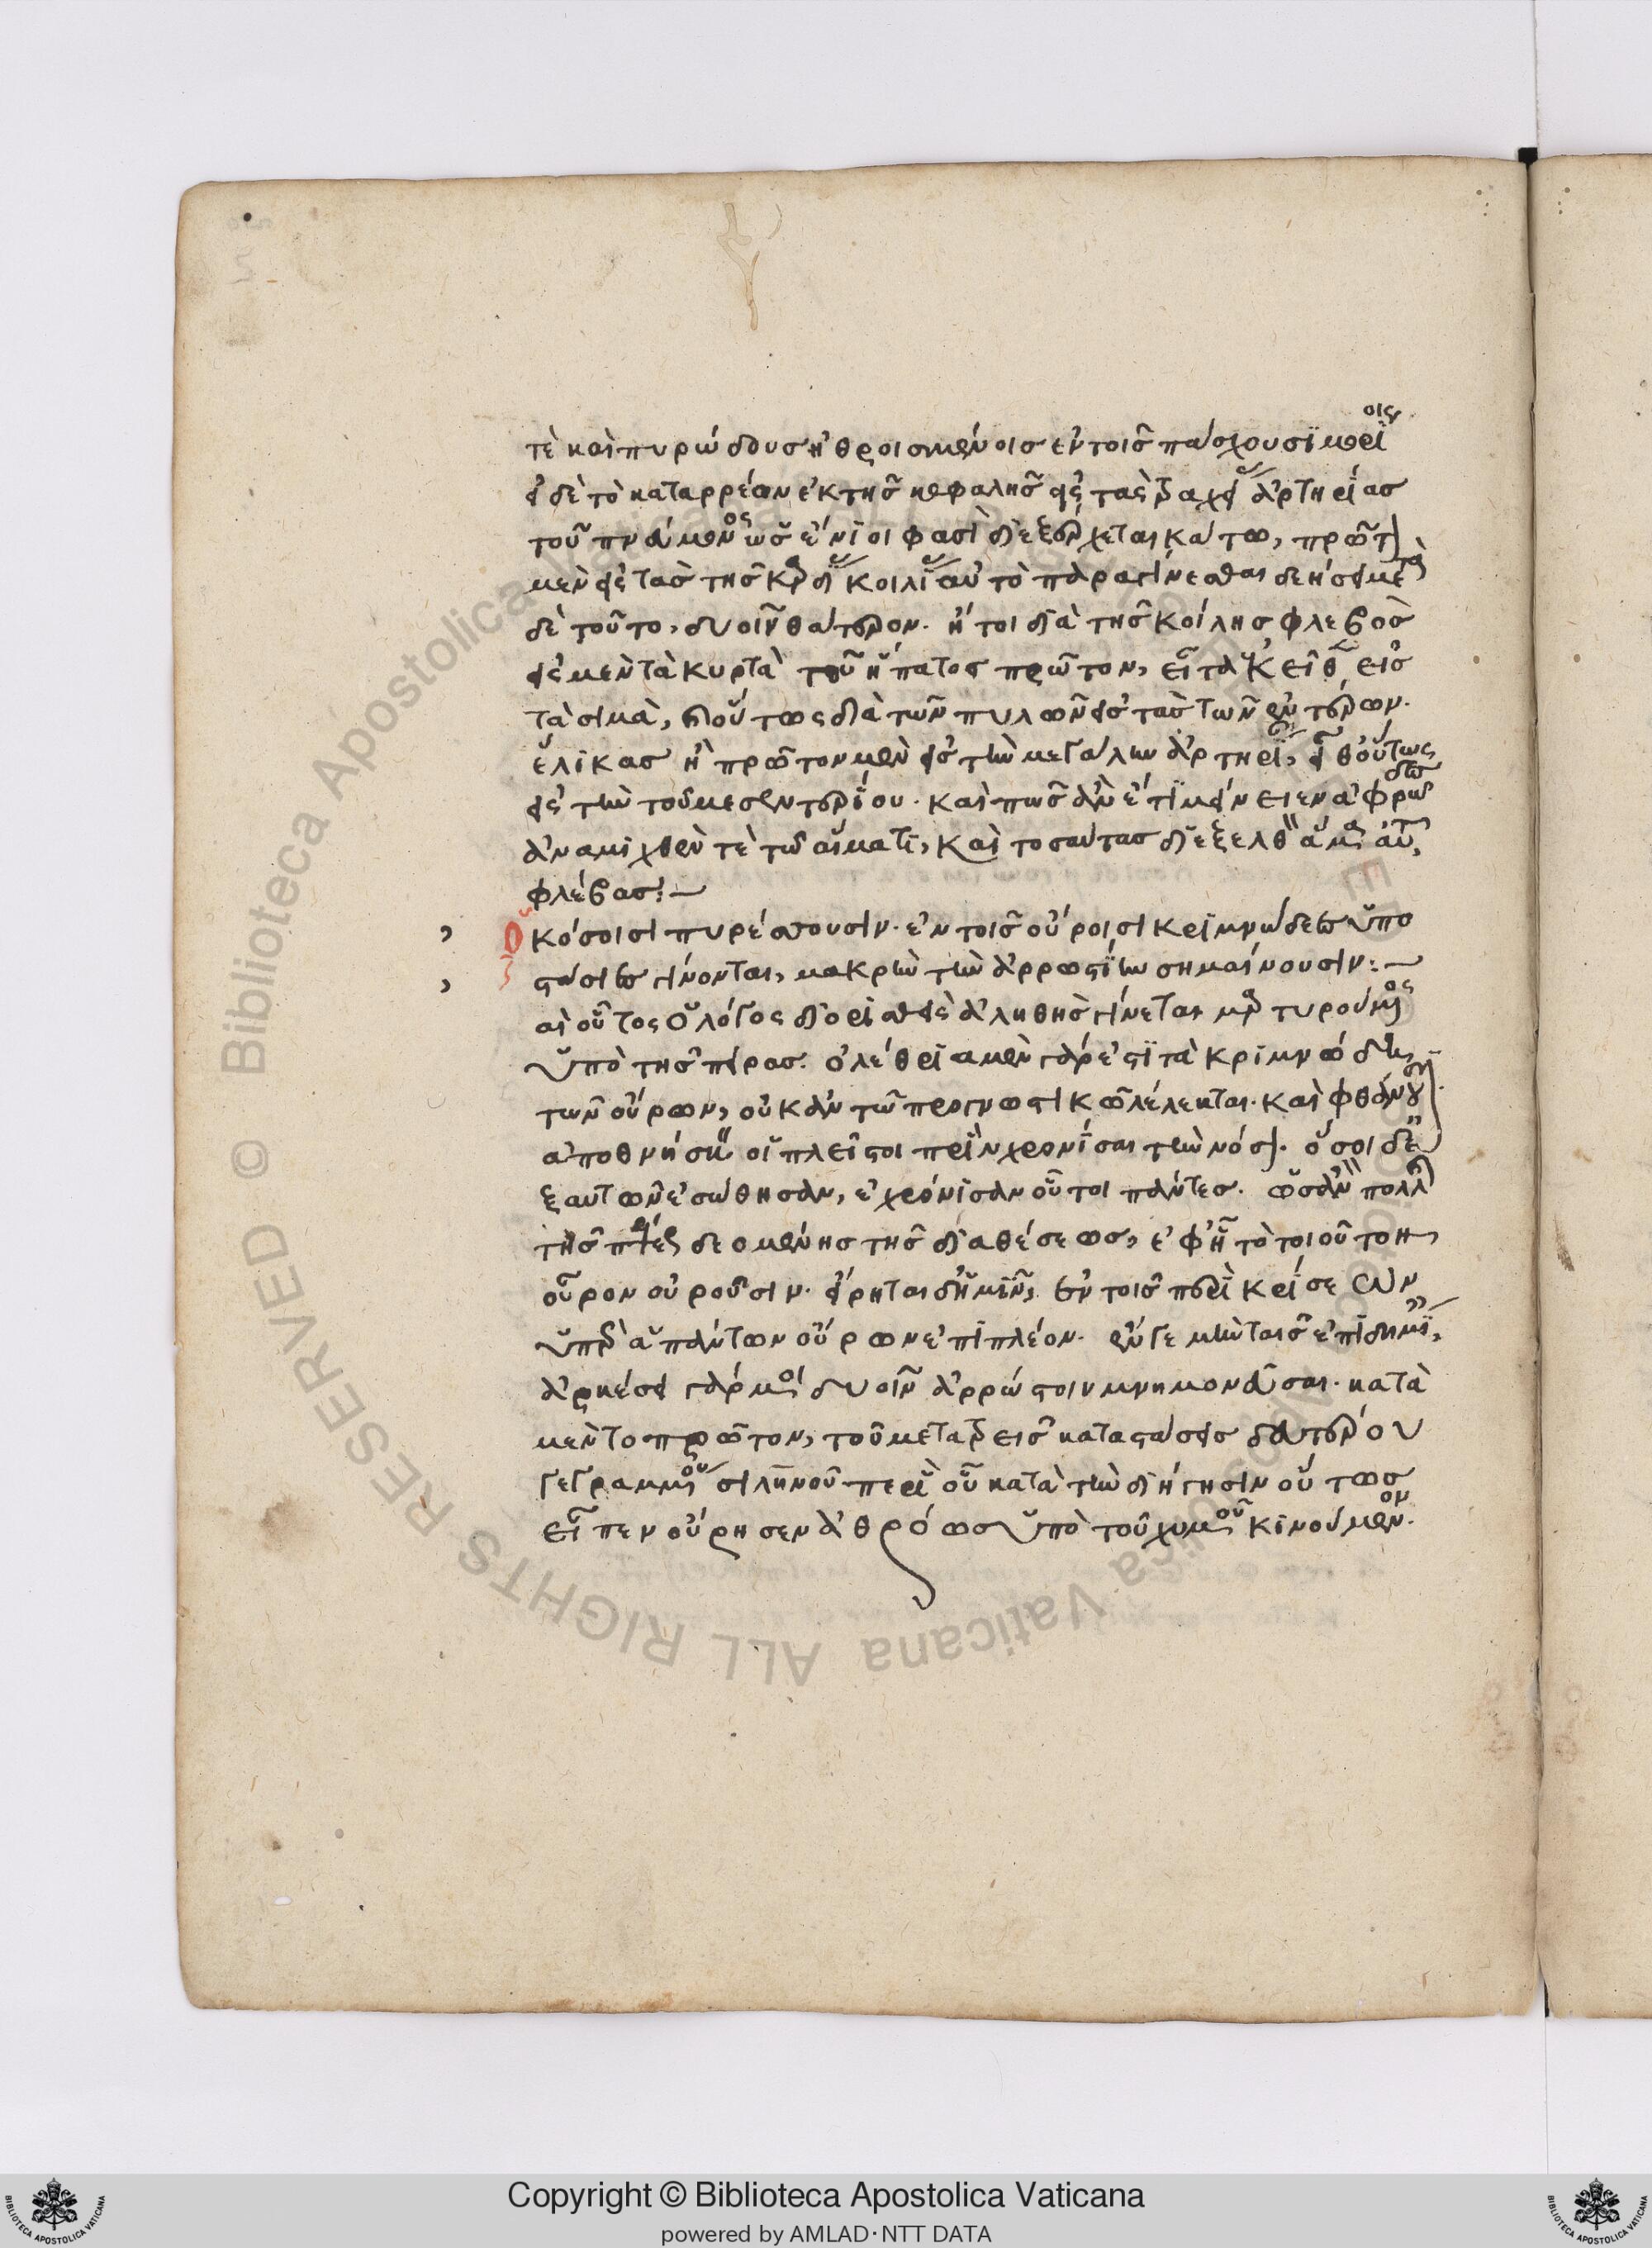 τὲ καὶ πυρώδους ἠθροισμένοις ἐν τοῖς πάσχουσϊ μορίοις
εἰ δὲ τὸ καταρρέον ἐκ τῆς κεφαλῆς εἰς τὰς τραχείας ἀρτηρίας
τοῦ πνεύμονος ὡς ἔνϊοι φασὶ διεξέρχεται κάτω, πρῶτον
μὲν εἰς τὰς τῆς καρδίας κοιλίας αὐτὸ παραγίνεσθαι δεήσει μετὰ
δὲ τοῦτο, δυοῖν θάτερον. ἤτοι διὰ τῆς κοίλης φλεβὸς
εἰς μὲν τὰ κυρτὰ τοῦ ἥπατος πρῶτον, εἶτα κεῖθεν εἰς
τὰ σιμὰ, οὕτως διὰ τῶν πυλῶν εἰς τὰς τῶν ἐντέρων.
ἕλϊκας ἢ πρῶτον μὲν εἰς τὴν μεγάλην ἀρτηρίαν, εἶθ οὕτως
εἰς τὴν τοῦ μεσεντερΐου. καὶ πῶς ἂν ἔτϊ μείνειεν ἀφρῶδες
ἀναμιχθέν τὲ τῷ αἵματϊ, καὶ τοσαύτας διεξελθὸν ἅμα αὐτῷ
φλέβας:—
Ὁκόσοισι πυρέσσουσιν. ἐν τοῖς οὔροισι κριμνώδεες ὑπο
στάσιες γίνονται, μακρὴν τὴν ἀρρωστΐην σημαίνουσιν:—
αι οὗτος ὁ λόγος διορισθεὶς ἀληθὴς γίνεται μαρτυρούμενος
ὑπὸ τῆς πείρας. ὀλέθρια μὲν γάρ ἐστϊ τὰ κριμνώδη
τῶν οὔρων, οὐκἂν τῷ προγνωστικῷ λέλεκται. καὶ φθάνουσιν
ἀποθνήσκειν οἱ πλεῖστοι πρὶν χρονΐσαι τὴν νόσον. ὅσοι δὲ
ἐξ αὐτῶν ἐσώθησαν, ἐχρόνϊσαν οὗτοι πάντες. ὡς ἂν πολλῆς
τῆς πέψεως δεομένης τῆς διαθέσεως, ἐφ ᾗ τὸ τοιοῦτον
οὖρον οὐροῦσιν. εἴρηται δ ἡμῖν, ἐν τοῖς περὶ κρίσεων
ὑπὲρ ἁπάντων οὔρων ἐπὶ πλέον. ἔν γε μὴν ταῖς ἐπϊδημίαις,
ἀρκέσει γάρ μοι δυοῖν ἀρρώστοιν μνημονεῦσαι. κατὰ
μὲν τὸ πρῶτον, τοῦ μετὰ τρεῖς καταστάσεις δευτέρου
γεγραμμένου σιληνοῦ περὶ οὗ κατὰ τὴν διήγησιν οὕτως
εἶπεν οὔρησεν ἀθρόως ὑπὸ τοῦ χυμοῦ κινούμενον.
Copyright © Biblioteca Apostolica Vaticana
powered by AMLAD·NTT DATA